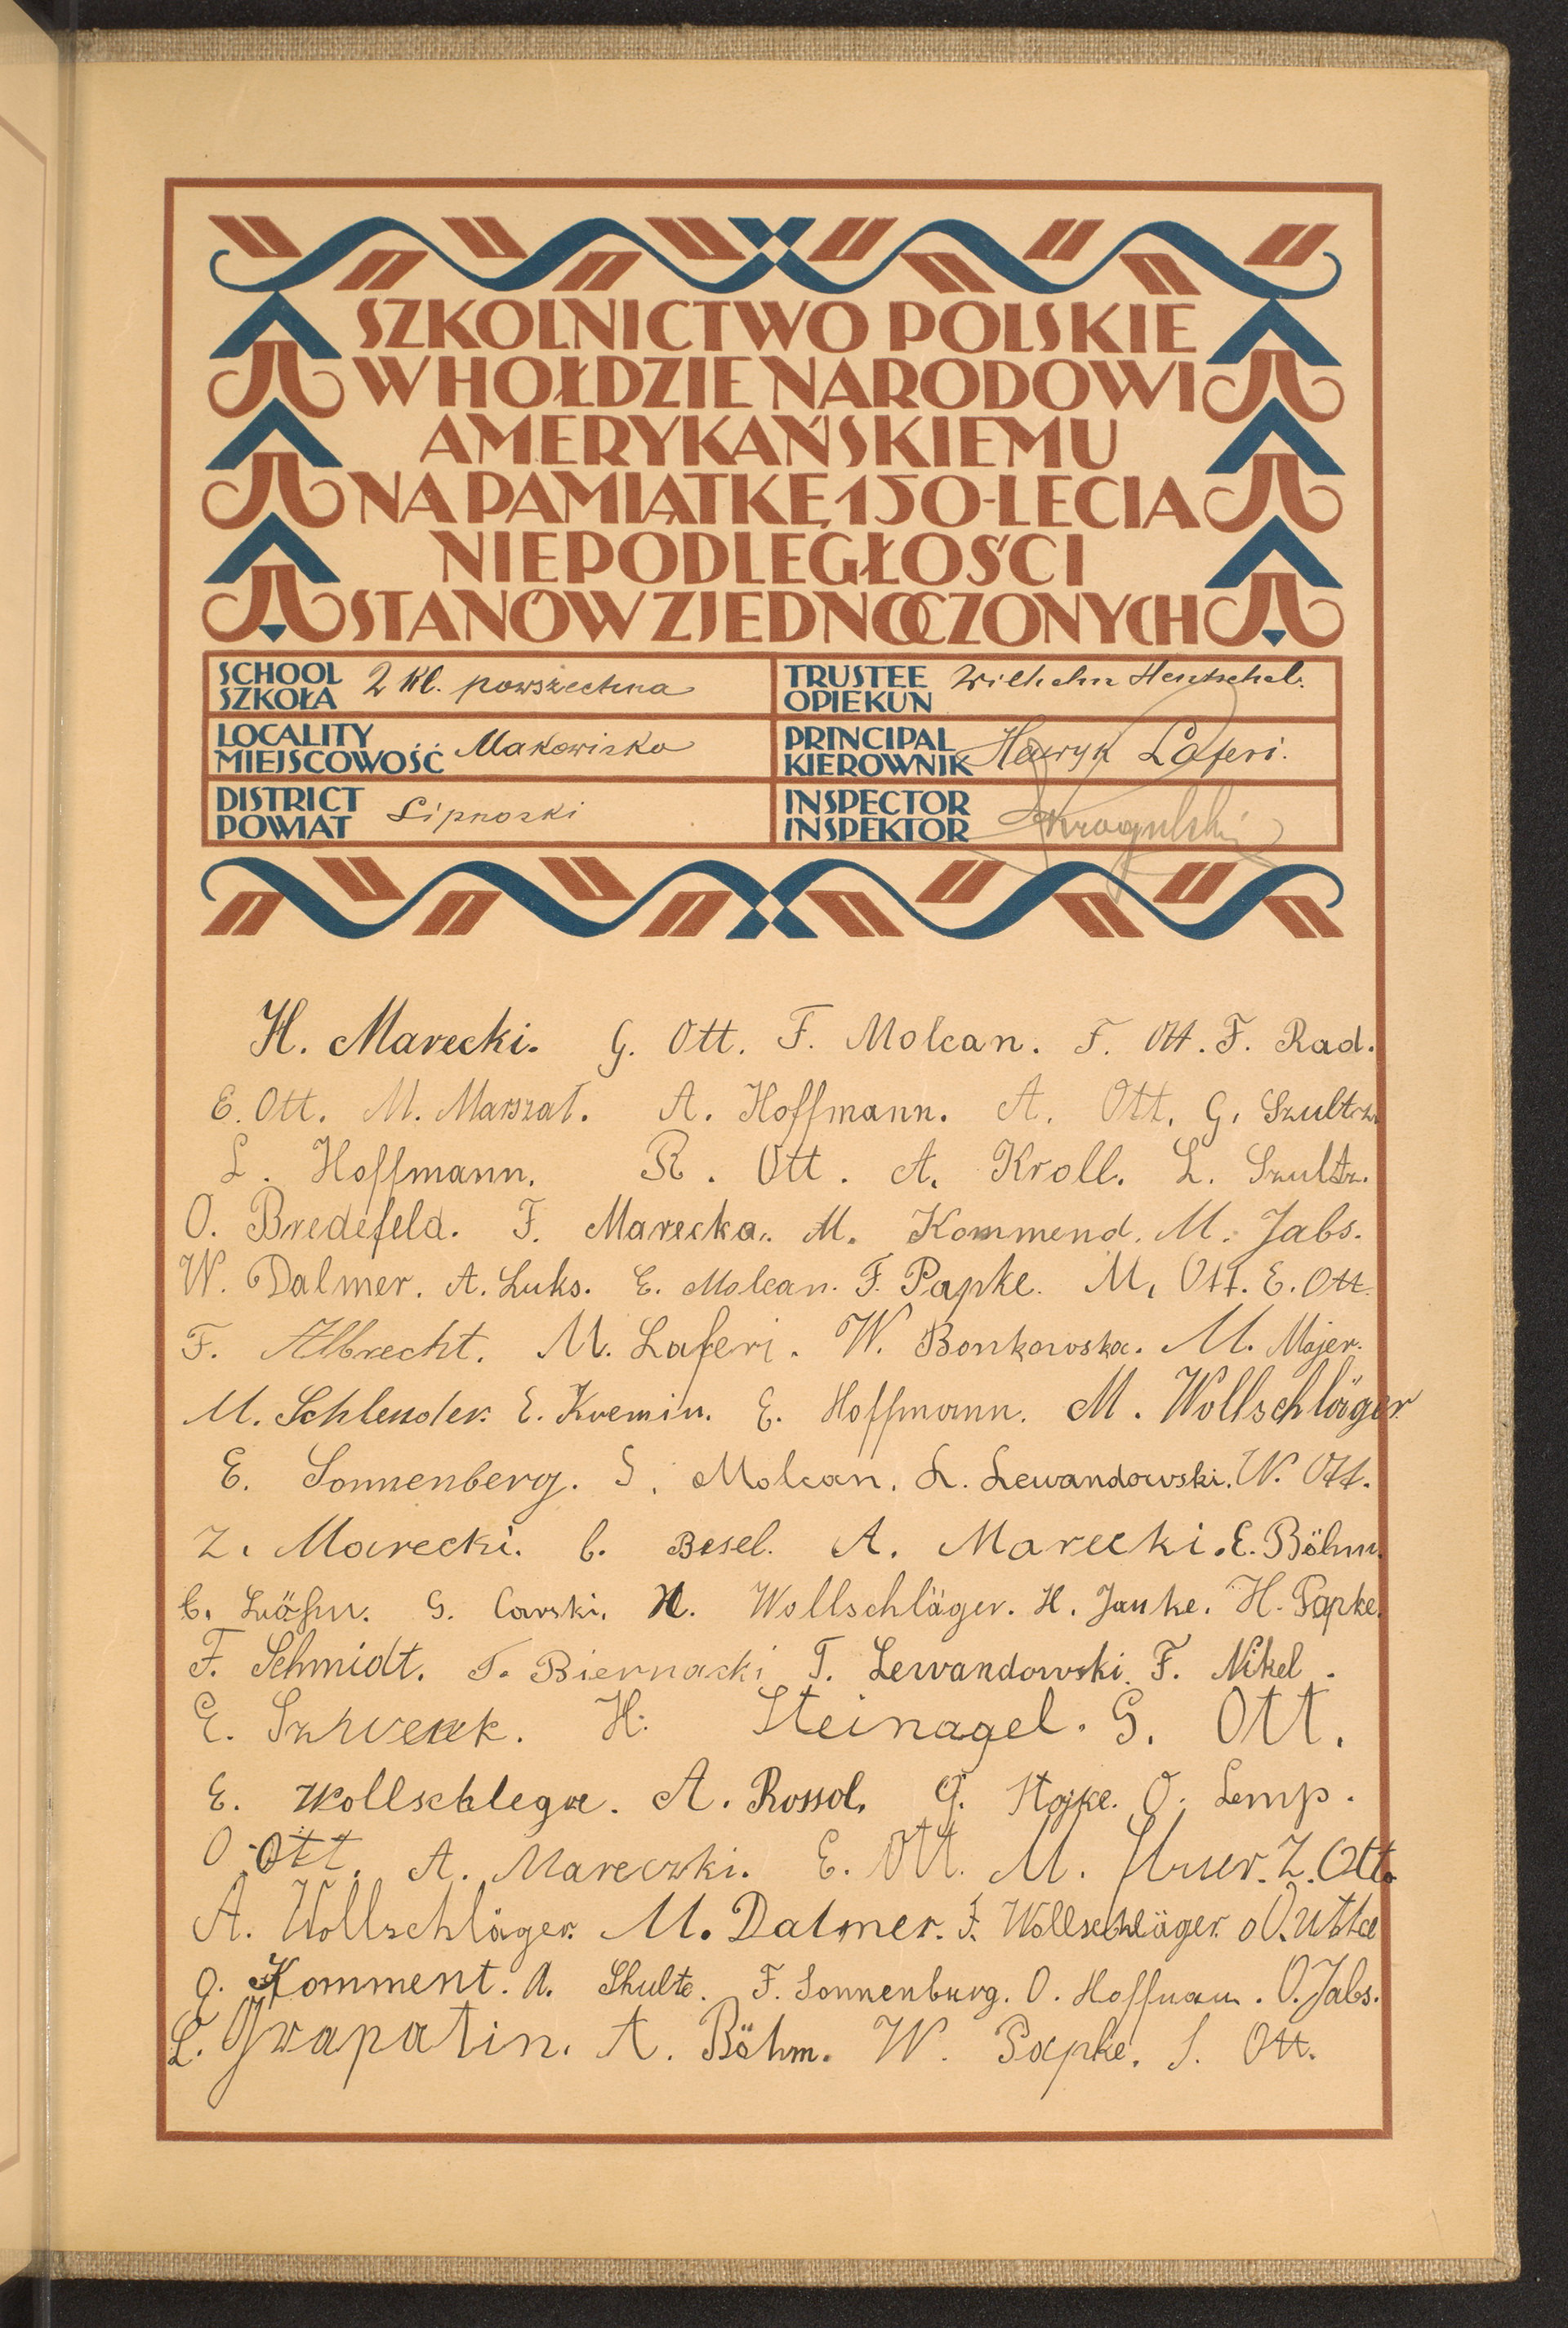 SZKOLNICTWO POLSKIE
W HOŁDZIE NARODOWI
AMERYKAŃSKIEMU
NA PAMIĄTKĘ 150-LECIA
NIEPODLEGŁOŚCI
STANÓW ZJEDNOCZONYCH
SCHOOL
SZKOŁA 2 kl. powszechna
TRUSTEE
OPIEKUN Wilhelm Hentschel.
LOCALITY
MIEJSCOWOŚĆ Makowisko
PRINCIPAL
KIEROWNIK Henryk Laferi.
DISTRICT
POWIAT Lipnoski
INSPECTOR
INSPEKTOR
H. Marecki. G. Ott. F. Molcan. F. Ott. F. Rad.
E. Ott. M. Marszał. A. Hoffmann. A. Ott. G. Szultz.
L. Hoffmann. R. Ott. A. Kroll. L. Szultz.
O. Bredefeld. F. Marecka. M. Kommend. M. Jabs.
W. Dalmer. A. Luks. E. Molcan. F. Papke. M. Ott. E. Ott.
F. Albrecht. M. Laferi. W. Bonkowska. M. Majer.
M. Schlender. E. Kremin. E. Hoffmann. M. Wollschläger.
E. Sonnenberg. S. Molcan. L. Lewandowski. W. Ott.
Z. Marecki. E. Besel. A. Marecki. E. Böhm.
G. Carski. H. Wollschläger. H. Janke. H. Papke.
F. Schmidt. T. Biernacki T. Lewandowski. F. Nikel.
E. H. Steinagel. G. Ott.
E. A. Rossol. O. Lemp.
O. Ott. A. Mareczki. E. Ott. M. Z. Ott.
A. Wollschläger. M. Dalmer. F. Wollschläger.
O. Komment. A. Shulte. F. Sonnenburg. O. Hoffman. O. Jabs.
L. Grapatin. A. Böhm. W. Papke. S. Ott.